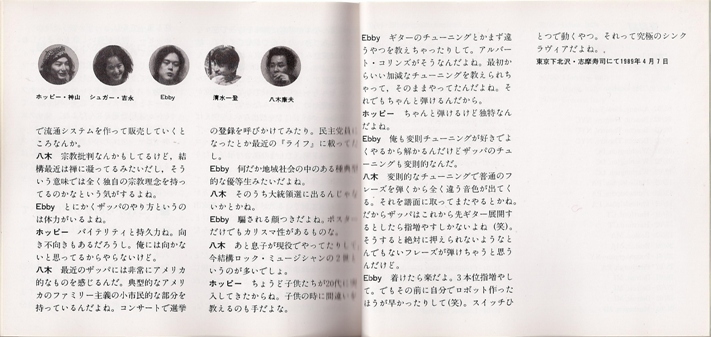 ホッピー・神山
シュガー・吉永
Ebby
清水一登
八木康夫
で流通システムを作って販売していくと
ころなんか。
八木　宗教批判なんかもしてるけど，結
構最近は禅に凝ってるみたいだし，そう
いう意味では全く独自の宗教理念を持っ
てるのかなという気がするよね。
Ebby　とにかくザッパのやり方というの
は体力がいるよね。
ホッピー　バイタリティと持久力ね。向
き不向きもあるだろうし。俺には向かな
いと思ってるからやらないけど。
八木　最近のザッパには非常にアメリカ
的なものを感じるんだ。典型的なアメリ
カのファミリー主義の小市民的な部分を
持っているんだよね。コンサートで選挙
の登録を呼びかけてみたり。民主党員に
なったとか最近の『ライフ』に載ってた
し。
Ebby　何だか地域社会の中のある種典型
的な優等生みたいだよね。
八木　そのうち大統領選に出るんじゃな
いかとかね。
Ebby　騙される顔つきだよね。ポスター
だけでもカリスマ性があるものな。
八木　あと息子が現役でやってたりして
今結構ロック・ミュージシャンの２世と
いうのが多いでしょ。
ホッピー　ちょうど子供たちが20代に突
入してきたからね。子供の時に間違いを
教えるのも手だよな。
Ebby　ギターのチューニングとかまず違
うやつを教えちゃったりして。アルバー
ト・コリンズがそうなんだよね。最初か
らいい加減なチューニングを教えられち
ゃって，そのままやってたんだよね。そ
れでもちゃんと弾けるんだから。
ホッピー　ちゃんと弾けるけど独特なん
だよね。
Ebby　俺も変則チューニングが好きでよ
くやるから解かるんだけどザッパのチュ
ーニングも変則的なんだ。
八木　変則的なチューニングで普通のフ
レーズを弾くから全く違う音色が出てく
る。それを譜面に取ってまたやるとかね。
だからザッパはこれから先ギター展開す
るとしたら指増やすしかないよね（笑）。
そうすると絶対に押えられないようなと
んでもないフレーズが弾けちゃうと思う
んだけど。
Ebby　着けたら楽だよ。３本位指増やし
て。でもその前に自分でロボット作った
ほうが早かったりして(笑)。スイッチひ
とつで動くやつ。それって究極のシンク
ラヴィアだよね。.
東京下北沢・志摩寿司にて1989年４月７日